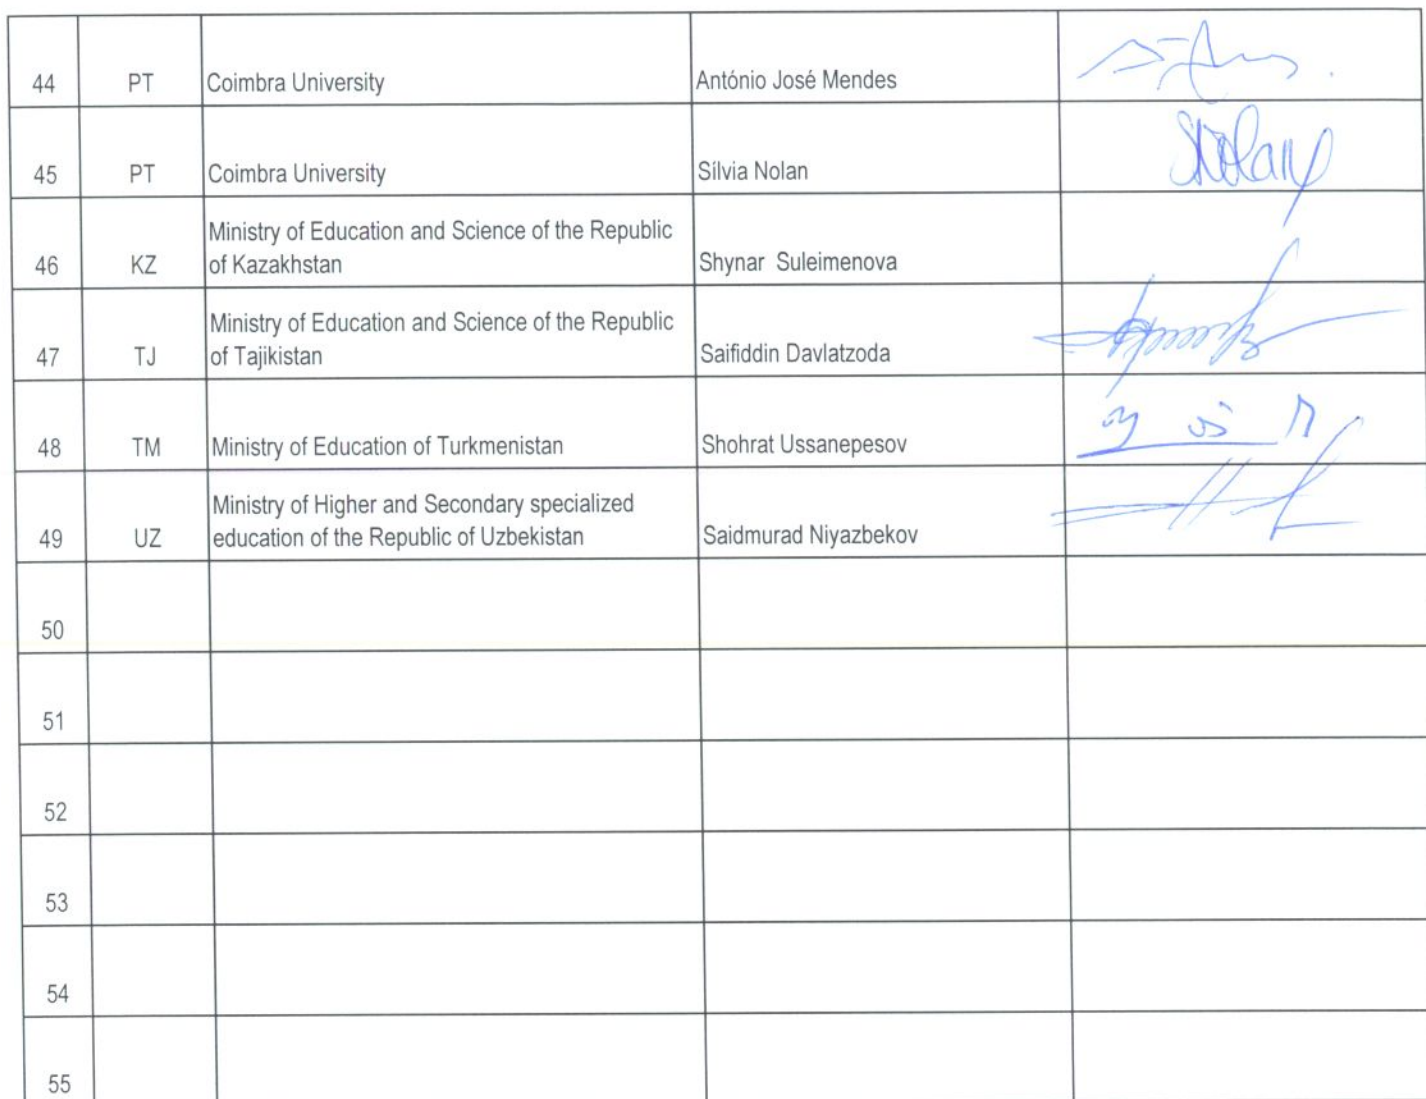 44 PT Coimbra University António José Mendes
45 PT Coimbra University Sílvia Nolan
SNolan
Ministry of Education and Science of the Republic
46 KZ of Kazakhstan Shynar Suleimenova
Ministry of Education and Science of the Republic
47 TJ of Tajikistan Saifiddin Davlatzoda
48 TM Ministry of Education of Turkmenistan Shohrat Ussanepesov
Ministry of Higher and Secondary specialized
49 UZ education of the Republic of Uzbekistan Saidmurad Niyazbekov
50
51
52
53
54
55